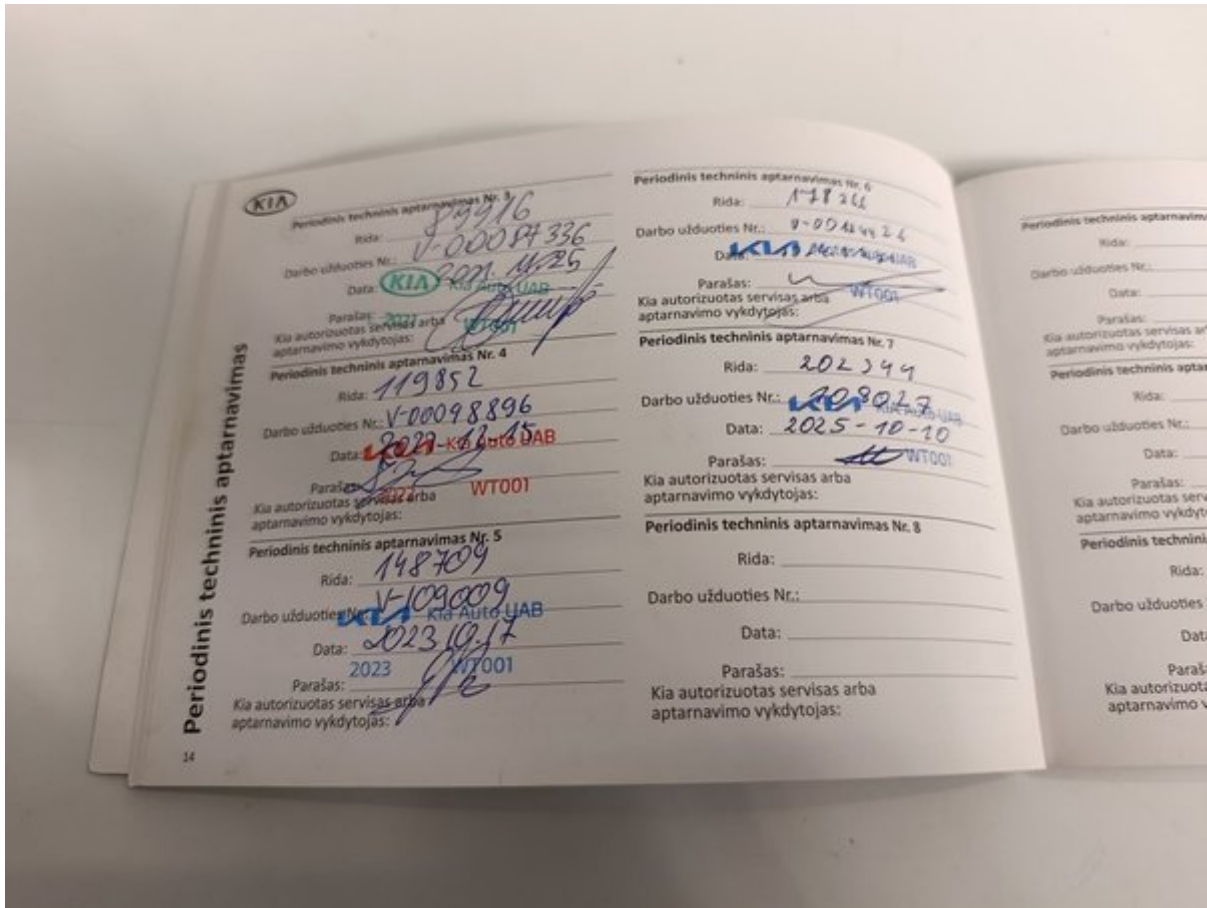 KIA
Periodinis techninis aptarnavimas
Periodinis techninis aptarnavimas Nr. 3
Rida: 89916
Darbo užduoties Nr.: V-00087336
Data: 2021.11.25
KIA Kia Auto UAB
Parašas:
2021 WT001
Kia autorizuotas servisas arba
aptarnavimo vykdytojas:
Periodinis techninis aptarnavimas Nr. 4
Rida: 119852
Darbo užduoties Nr.: V-00098896
Data: 2022-12-15
KIA Kia Auto UAB
Parašas:
2022 WT001
Kia autorizuotas servisas arba
aptarnavimo vykdytojas:
Periodinis techninis aptarnavimas Nr. 5
Rida: 148709
Darbo užduoties Nr.: V-109009
KIA Kia Auto UAB
Data: 2023.10.17
2023 WT001
Parašas:
Kia autorizuotas servisas arba
aptarnavimo vykdytojas:
14
Periodinis techninis aptarnavimas Nr. 6
Rida: 178261
Darbo užduoties Nr.:
Data:
KIA UAB
Parašas:
WT001
Kia autorizuotas servisas arba
aptarnavimo vykdytojas:
Periodinis techninis aptarnavimas Nr. 7
Rida:
Darbo užduoties Nr.: 208027
KIA Kia Auto UAB
Data: 2025-10-10
Parašas:
WT001
Kia autorizuotas servisas arba
aptarnavimo vykdytojas:
Periodinis techninis aptarnavimas Nr. 8
Rida:
Darbo užduoties Nr.:
Data:
Parašas:
Kia autorizuotas servisas arba
aptarnavimo vykdytojas:
Periodinis techninis
Rida:
Darbo užduoties Nr.:
Data:
Parašas:
Kia autorizuotas servisas
aptarnavimo
Periodinis techninis
Rida:
Darbo užduoties Nr.:
Data:
Parašas:
Kia autorizuotas
aptarnavimo
Periodinis
Rida:
Darbo užduoties
Kia
aptarnavimo